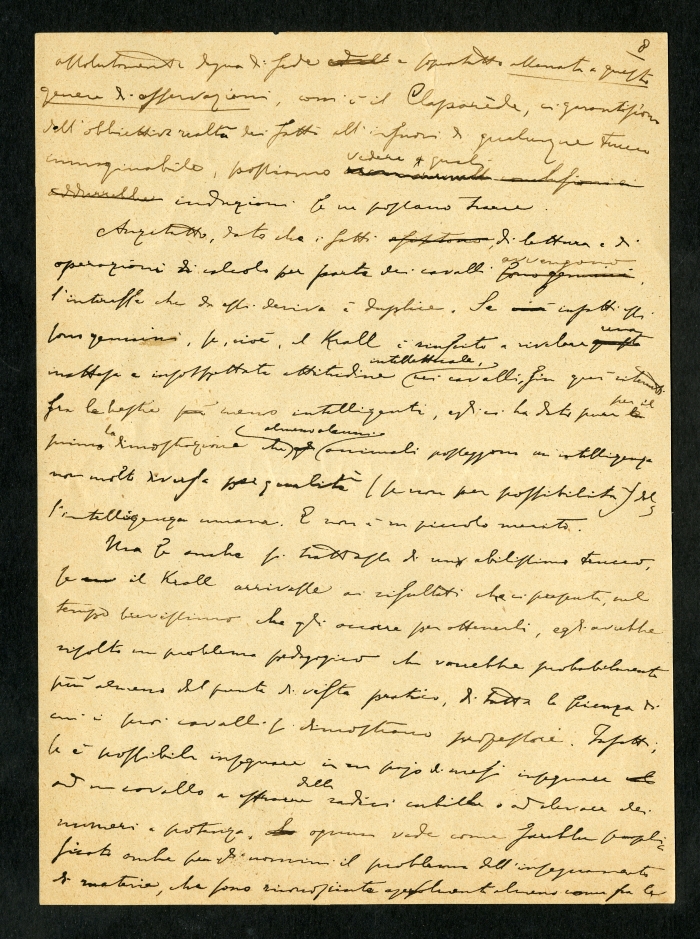 8
assolutamente degna di fede e soprattutto allenata a questo
genere di osservazioni, com'è il Claparède, ci garantiscono
dell'obbiettiva realtà dei fatti all'infuori di qualunque trucco
immaginabile, possiamo vedere quali
induzioni se ne possano trarre.
Anzitutto, dato che i fatti di lettura e di
operazioni di calcolo per parte dei cavalli avvengono,
l'interesse che da essi deriva è duplice. Se infatti essi
sono genuini, se, cioè, il Krall è riuscito a rivelare una
inattesa e insospettata attitudine intellettuale nei cavalli, fin qui ritenuti
fra le bestie meno intelligenti, egli ci ha dato pure per il
primo la dimostrazione che almeno alcuni animali posseggono un'intelligenza
non molto diversa per qualità (se non per possibilità) dal-
l'intelligenza umana. E non è un piccolo merito.
Ma se anche si trattasse di un abilissimo trucco,
se il Krall arrivasse ai risultati che ci presenta, nel
tempo brevissimo che gli occorre per ottenerli, egli avrebbe
risolto un problema pedagogico che varrebbe probabilmente
più, almeno dal punto di vista pratico, di tutta la scienza di
cui i suoi cavalli si dimostrano professori. Infatti,
se è possibile insegnare in un pajo di mesi
ad un cavallo a estrarre delle radici cubiche o ad elevare dei
numeri a potenza, ognun vede come sarebbe sempli-
ficato anche per gli uomini il problema dell'insegnamento
di materie, che sono riconosciute almeno come fra le